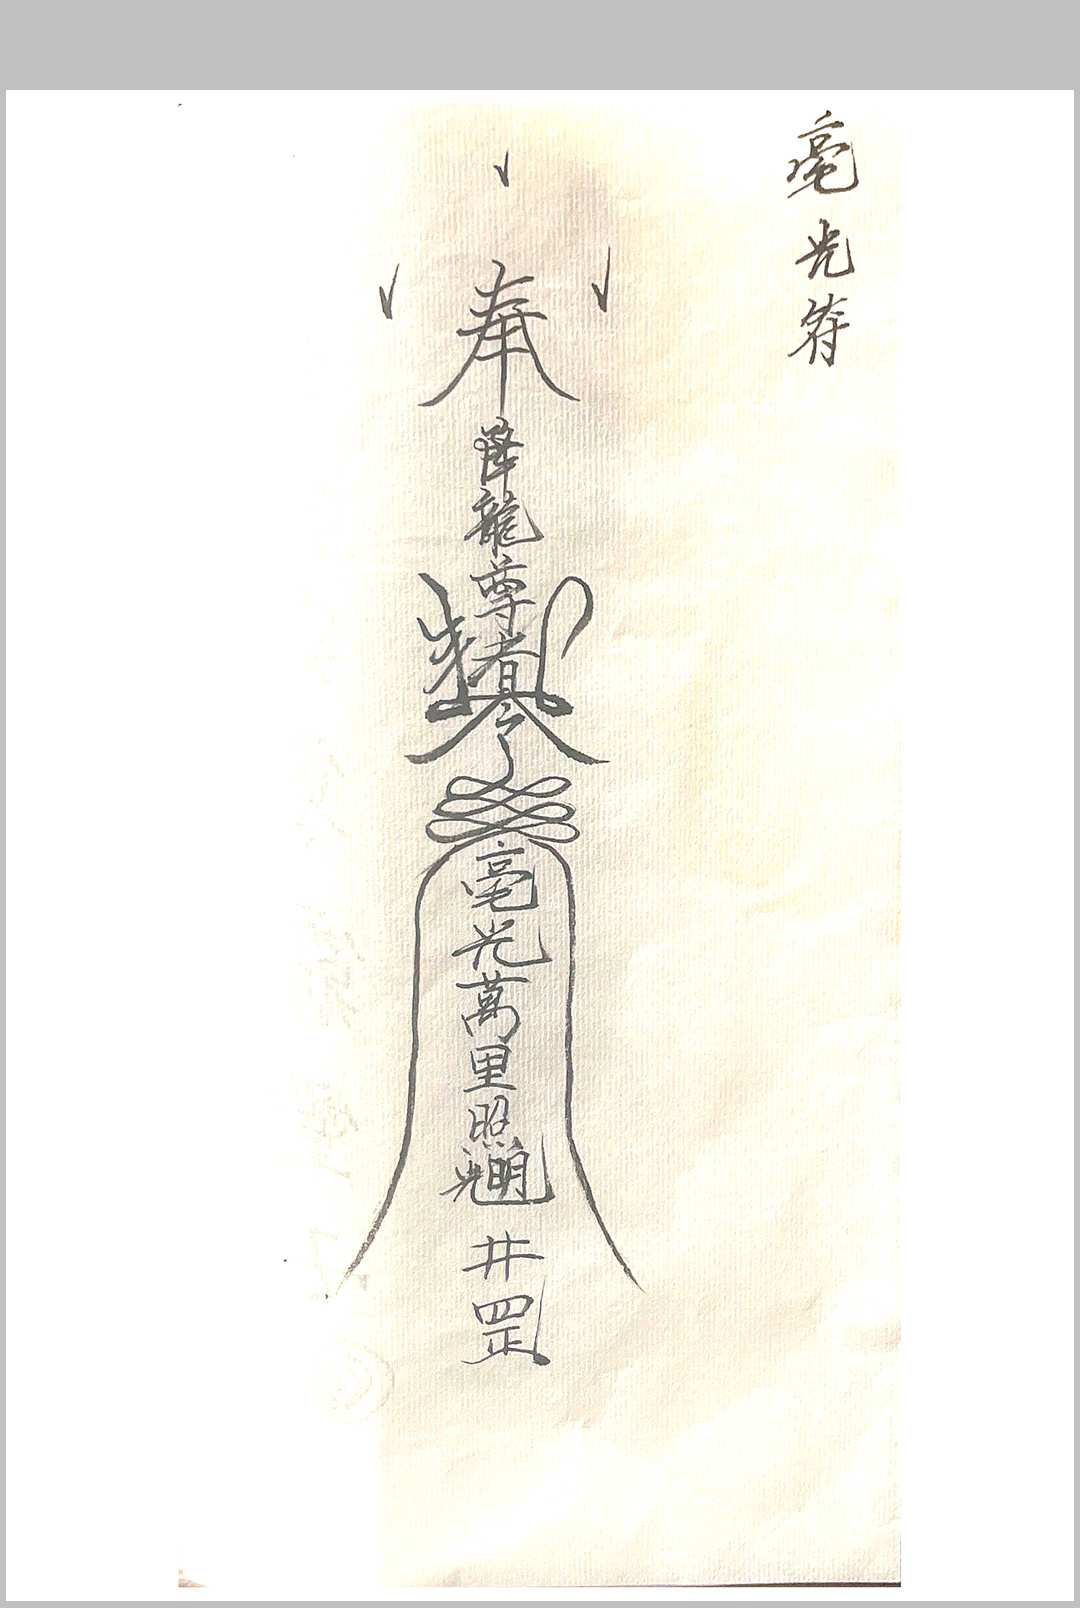 毫光符
奉降龍尊者令
毫光萬里照光明
井罡